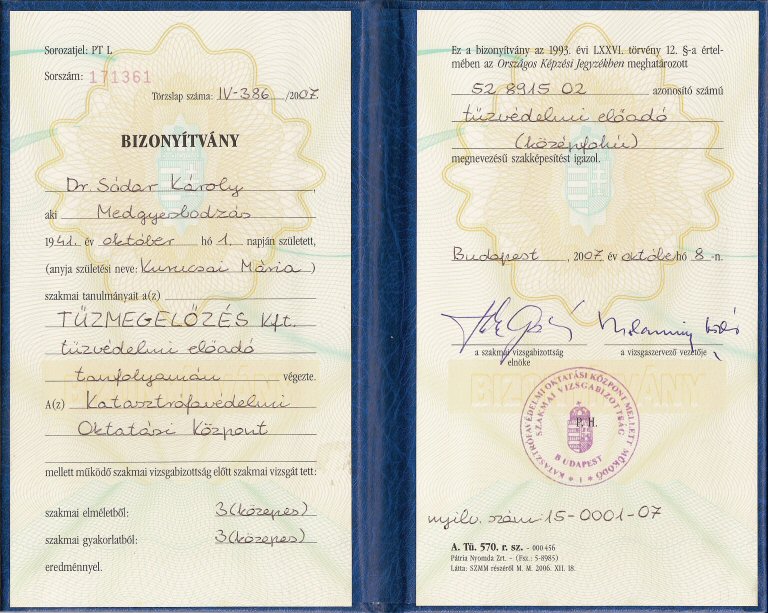 Sorozatjel: PT L
Sorszám: 171361
Törzslap száma: IV-386 /2007.
BIZONYÍTVÁNY
Dr. Sódar Károly,
aki Medgyesbodzás
1941. év október hó 1. napján született,
(anyja születési neve: Kurucsai Mária)
szakmai tanulmányait a(z)
TŰZMEGELŐZÉS Kft.
tűzvédelmi előadó
tanfolyamán végezte.
A(z) Katasztrófavédelmi
Oktatási Központ
mellett működő szakmai vizsgabizottság előtt szakmai vizsgát tett:
szakmai elméletből: 3 (közepes)
szakmai gyakorlatból: 3 (közepes)
eredménnyel.
Ez a bizonyítvány az 1993. évi LXXVI. törvény 12. §-a értel-
mében az Országos Képzési Jegyzékben meghatározott
52 8915 02 azonosító számú
tűzvédelmi előadó
(középfokú)
megnevezésű szakképesítést igazol.
Budapest, 2007. év október hó 8-n.
a szakmai vizsgabizottság
elnöke
a vizsgaszervező vezetője
BIZONYÍTVÁNY
KATASZTRÓFAVÉDELMI OKTATÁSI KÖZPONT MELLETT MŰKÖDŐ
SZAKMAI VIZSGABIZOTTSÁG
P. H.
BUDAPEST
* 1 *
nyilv. szám: 15-0001-07
A. Tü. 570. r. sz. - 000456
Pátria Nyomda Zrt. – (Fsz.: 5-8985)
Látta: SZMM részéről M. M. 2006. XII. 18.